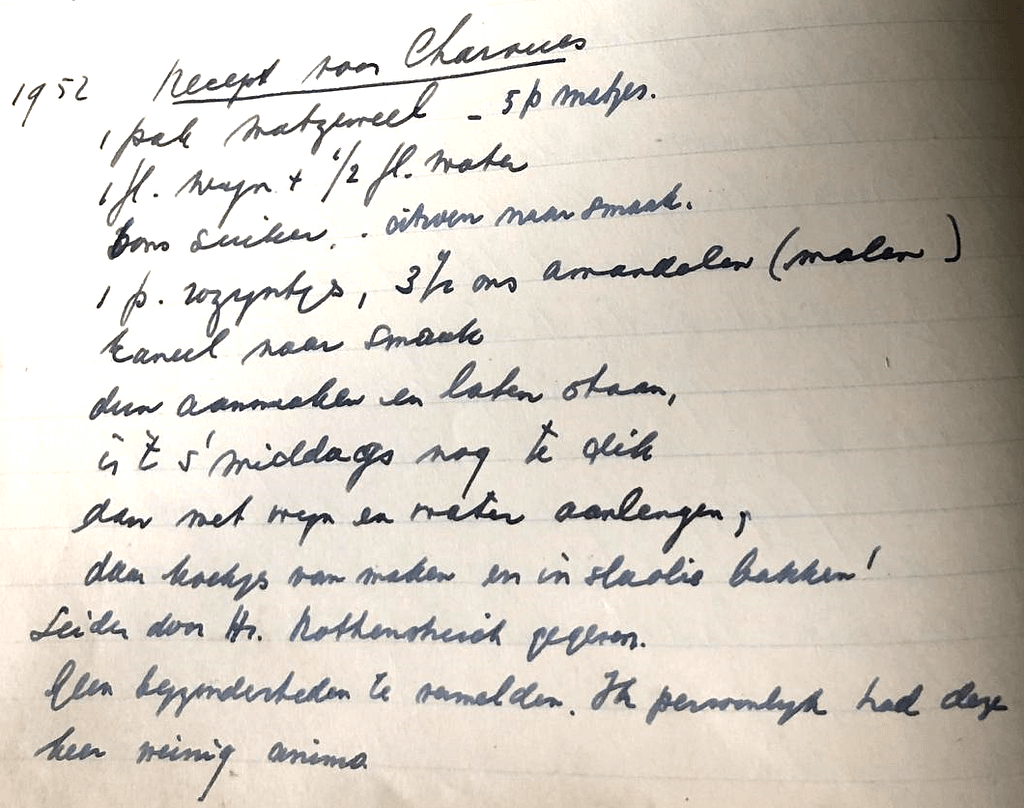 1952 Recept voor Charoues
1 pak matzemeel - 5 p matzes.
1 fl. wijn + 1/2 fl. water
6 ons suiker, . citroen naar smaak.
1 p. rozijntjes, 3 1/2 ons amandelen (malen)
kaneel naar smaak
dun aanmaken en laten staan,
is 't s'middags nog te dik
dan met wijn en water aanlengen,
daar koekjes van maken en in slaolie bakken!
Seider door Hr. Rothensteich gegeven.
Geen bijzonderheden te vermelden. Ik persoonlijk had deze
keer weinig animo